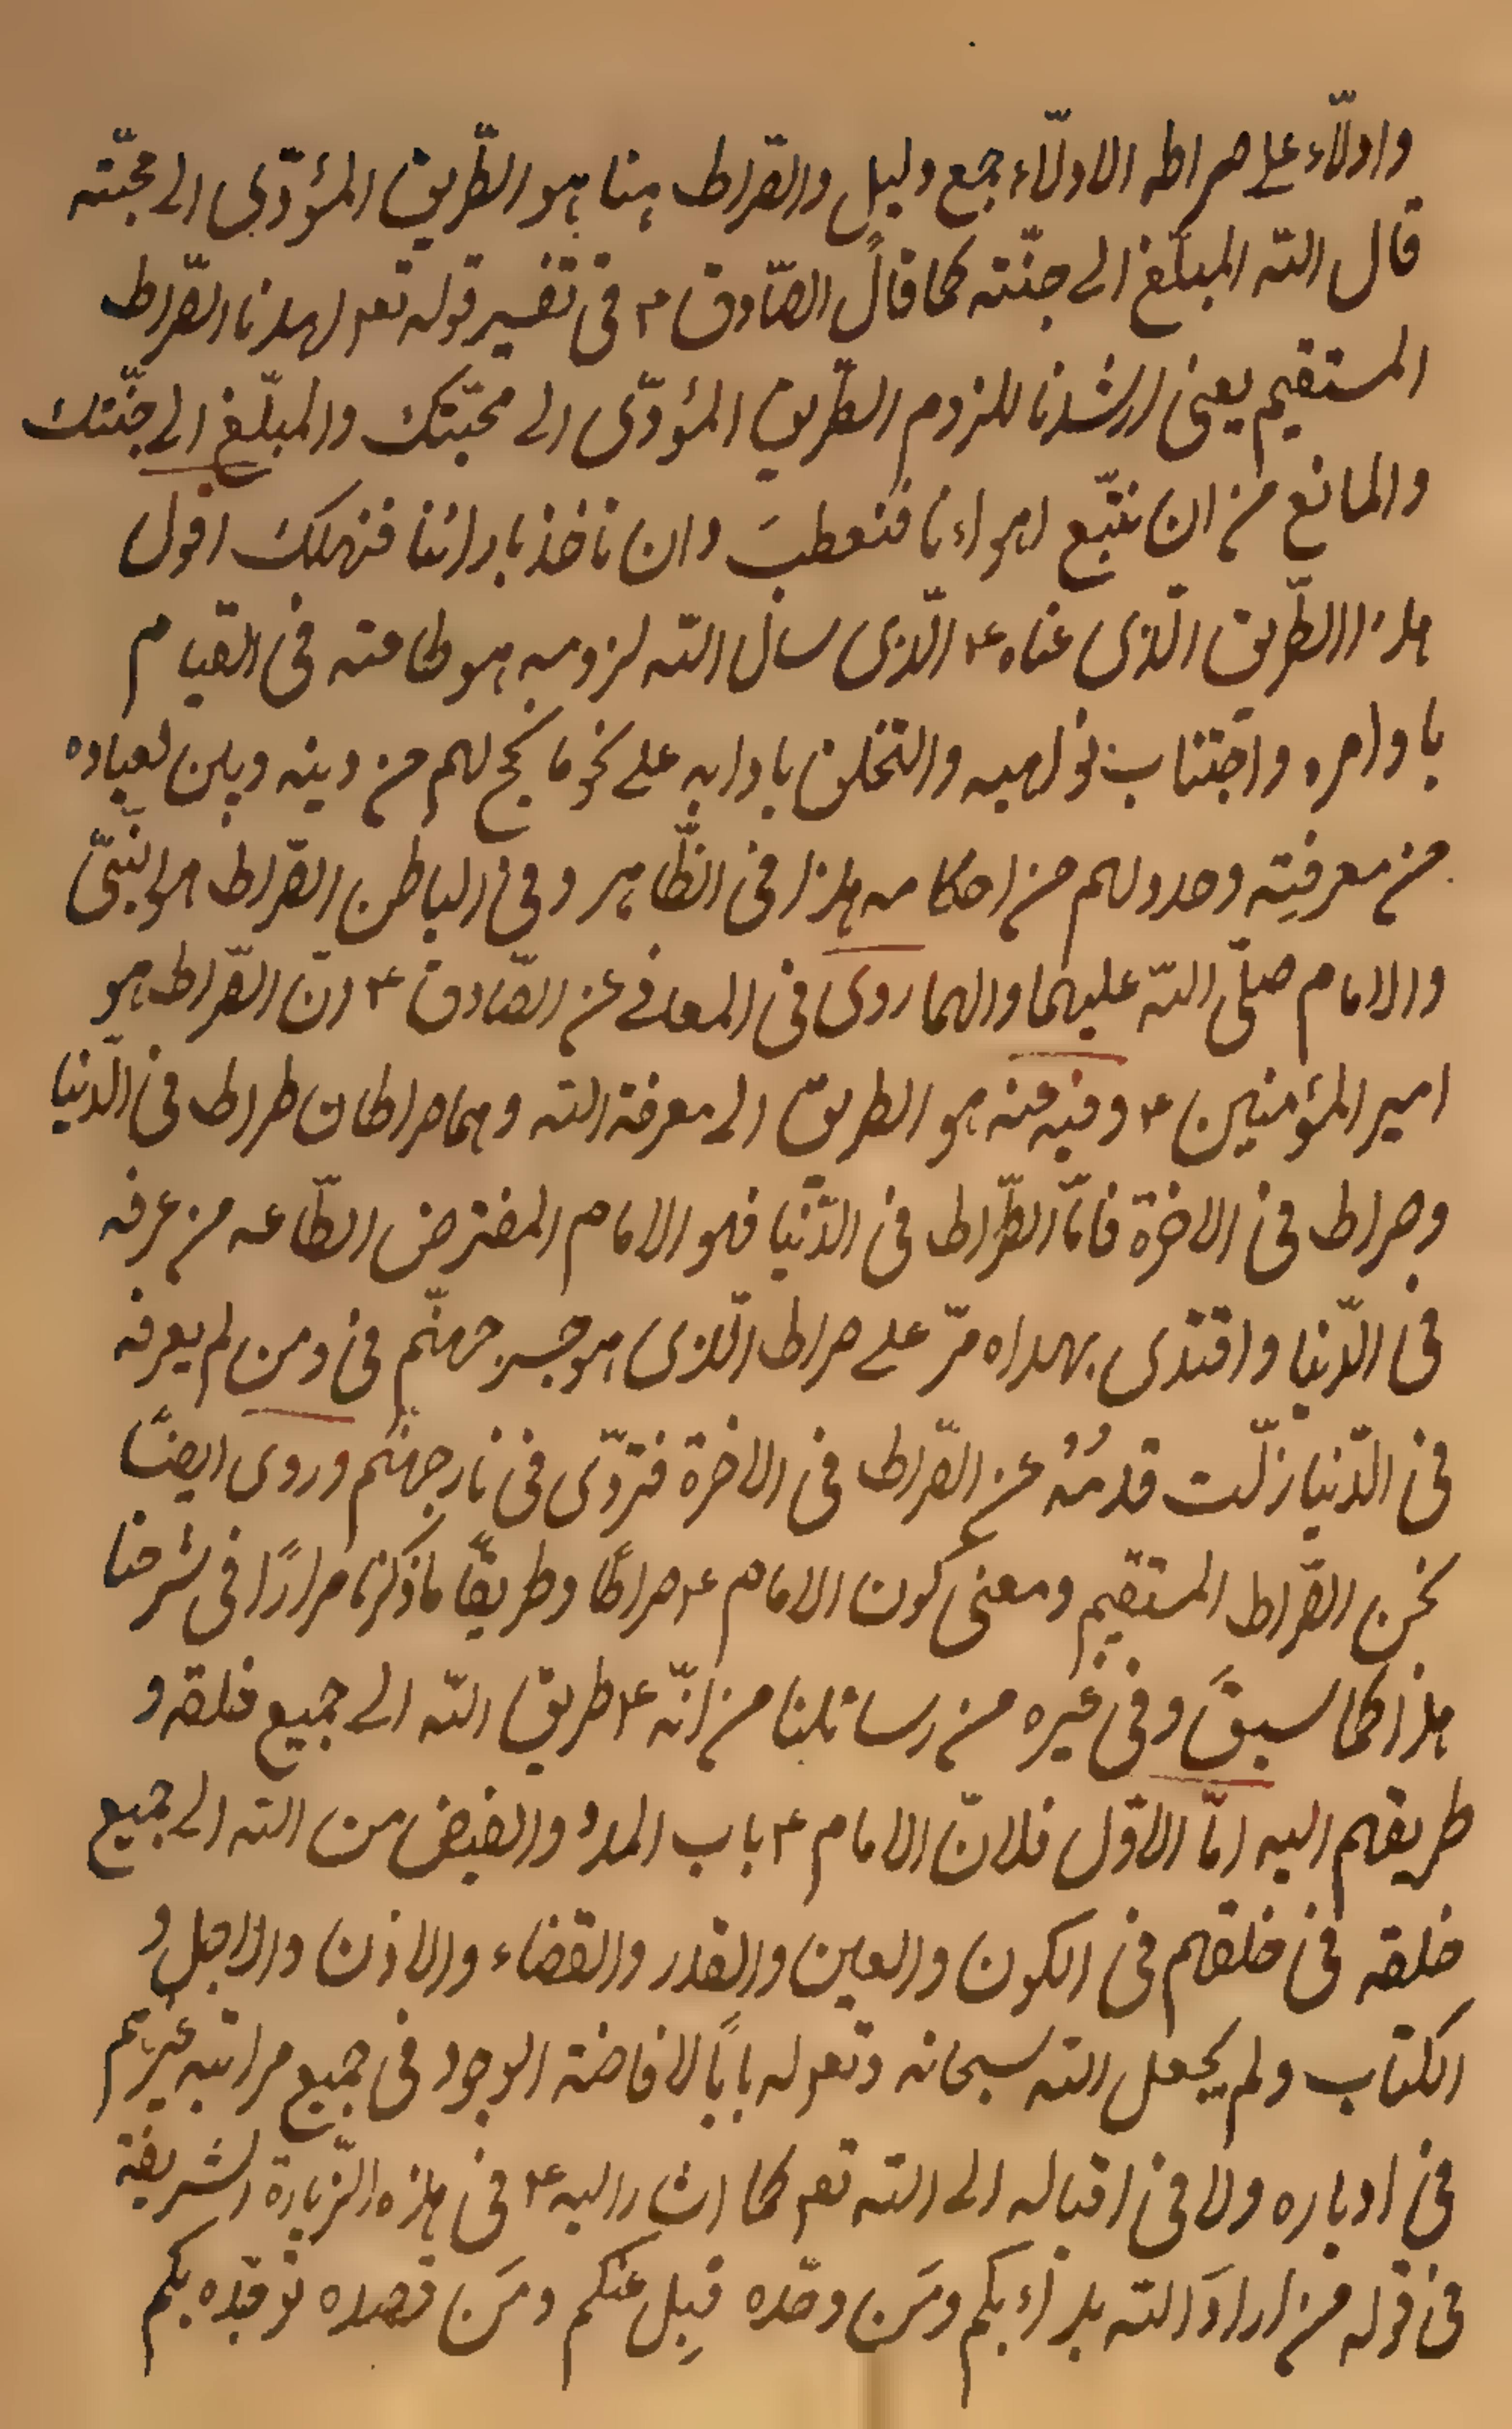 وادلّاء على صراطه الادلّاء جمع دليل والصّراط هنا هو الطّريق المؤدّى الى محبّته
قال الله المبلّغ الى جنّته كما قال الصّادق ع فى تفسير قوله تعم اهدنا الصّراط
المستقيم يعنى ارشدنا للزوم الطّريق المؤدّى الى محبّتك والمبلّغ الى جنّتك
والمانع من ان نتبّع اهواءنا فنعطبَ وان ناخذ بارائنا فنهلك اقول
هذا الطّريق الّذى عناه ع الّذى سال الله لزومه هو طاعته فى القيام
باوامره واجتناب نواهيه والتخلق بادابه على نحو ما نهج لهم من دينه وبين لعباده
من معرفته وحدد لهم من احكامه هذا فى الظّاهر وفى الباطن الصّراط هو النّبىّ
والامام صلّى الله عليهما والهما روى فى المعانى عن الصّادق ع انّ الصّراط هو
امير المؤمنين ع وفيه عنه هو الطريق الى معرفة الله وهما صراطان صراط فى الدّنيا
وصراط فى الاخرة فامّا الصّراط فى الدّنيا فهو الامام المفترض الطّاعه من عرفه
فى الدّنيا واقتدى بهداه مرّ على صراط الّذى هو جسر جهنّم فى ومن لم يعرفه
فى الدّنيا زلّت قدمُهُ عن الصّراط فى الاخرة فتردّى فى نار جهنّم وروى ايضًا
نحن الصّراط المستقيم ومعنى كون الامام ع صراطًا وطريقًا ما ذكرنا مرارًا فى شرحنا
هذا كما سبق وفى غيره من رسائلنا من انّه ع طريق الله الى جميع خلقه و
طريقهم اليه امّا الاوّل فلانّ الامام ع باب المدد والفيض من الله الى جميع
خلقه فى خلقهم فى الكون والعين والقدر والقضاء والاذن والاجل و
الكتاب ولم يجعل الله سبحانه وتعم له بابًا لافاضة الوجود فى جميع مراتبه غيرهم
فى ادباره ولا فى اقباله الى الله تعم كما اشار اليه ع فى هذه الزّيارة الشريفة
فى قوله من ارادَ الله بدأ بكم ومَن وحّده قبِل عنكم ومَن قصده توجّه بكم